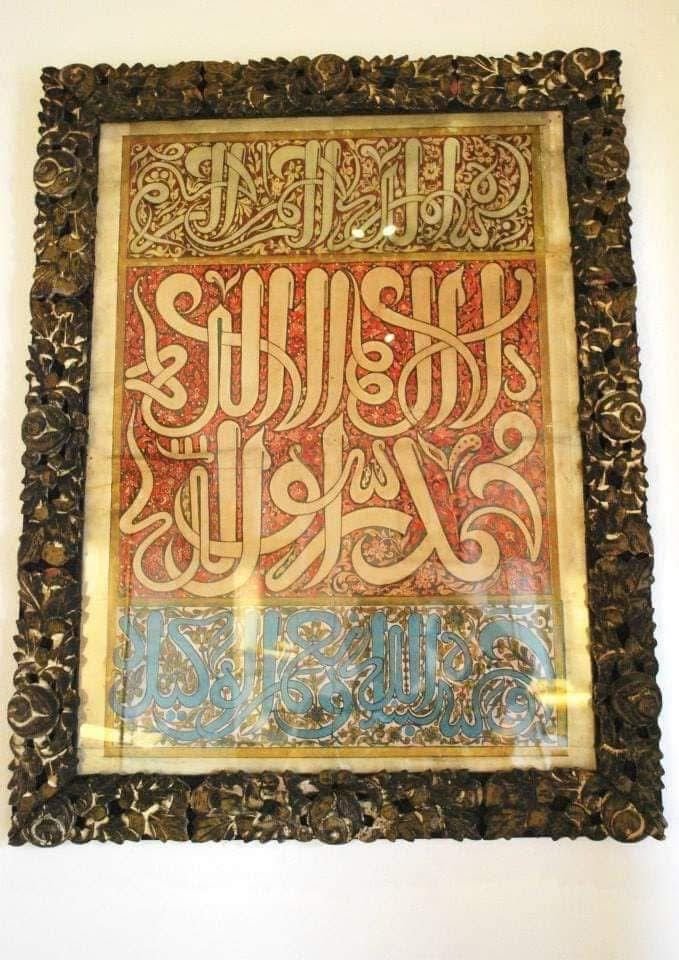 بسم الله الرحمن الرحيم
لا اله الا الله
محمد رسول الله
حسبنا الله ونعم الوكيل